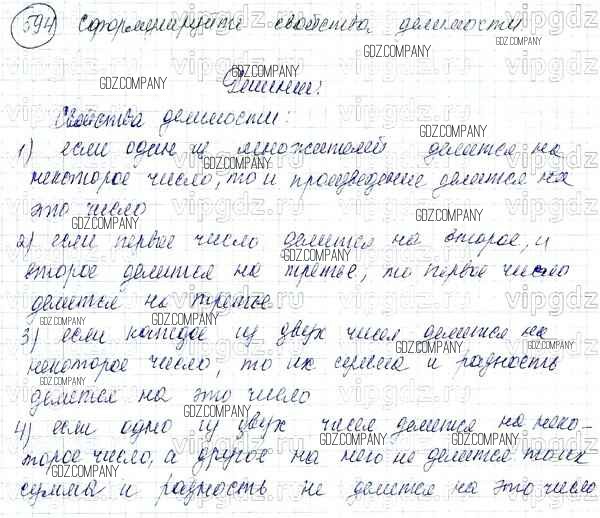 594 Сформулируйте свойства делимости
Решение:
Свойства делимости:
1) если один из множителей делится на
некоторое число, то и произведение делится на
это число
2) если первое число делится на второе, и
второе делится на третье, то первое число
делится на третье.
3) если каждое из двух чисел делится на
некоторое число, то их сумма и разность
делится на это число
4) если одно из двух чисел делится на неко-
торое число, а другое на него не делится то их
сумма и разность не делится на это число